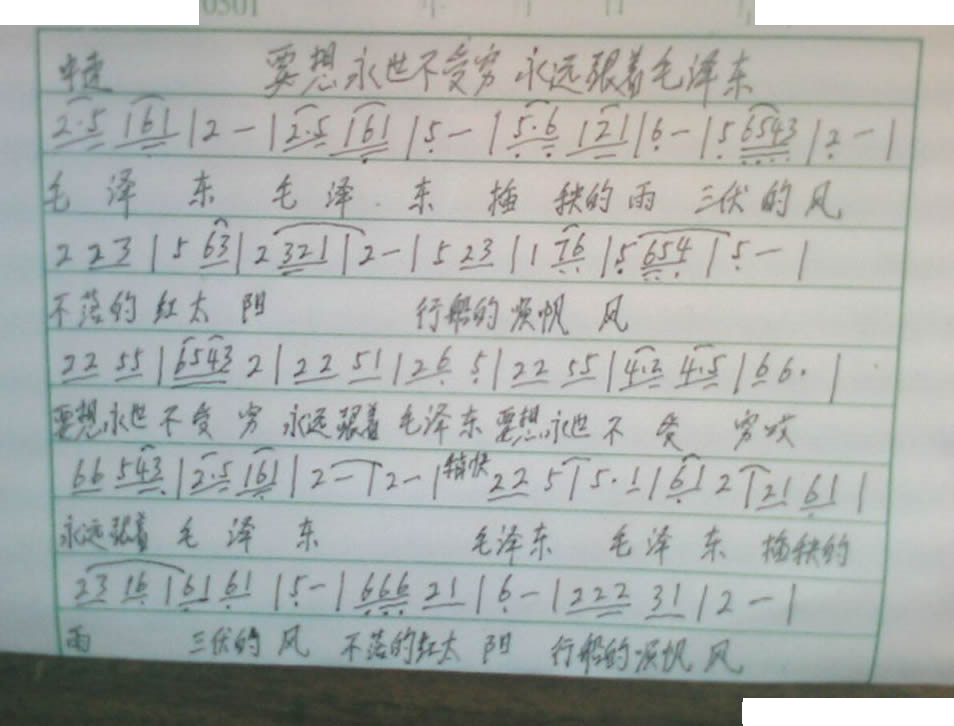 0501
中速 要想永世不受穷永远跟着毛泽东
2·5 161 | 2 — | 2·5 161 | 5 — | 5·6 121 | 6 — | 5 6543 | 2 — |
毛 泽 东 毛 泽 东 插 秧的 雨 三伏 的 风
2 23 | 5 63 | 2 321 | 2 — | 5 23 | 1 76 | 5 654 | 5 — |
不落的 红太 阳 行船的 顺帆 风
22 55 | 6543 2 | 22 51 | 26 5 | 22 55 | 4·2 4·5 | 6 6· |
要想永世 不 受 穷 永远跟着 毛泽东 要想永世 不 受 穷哎
66 543 | 2·5 161 | 2 — | 2 — | 稍快 22 5 | 5·1 | 61 2 | 21 61 |
永远跟着 毛 泽 东 毛泽东 毛 泽 东 插秧的
23 16 | 61 61 | 5 — | 666 21 | 6 — | 222 31 | 2 — |
雨 三伏的 风 不落的红太 阳 行船的顺帆 风